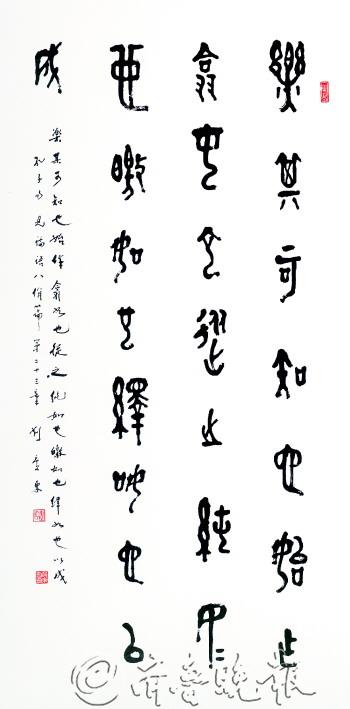 樂其可知也始作
翕如也從之純如
也皦如也繹如也以
成
樂其可知也始作翕如也從之純如也皦如也繹如也以成
孔子句見論語八佾篇第二十三章 劉
齐鲁晚报